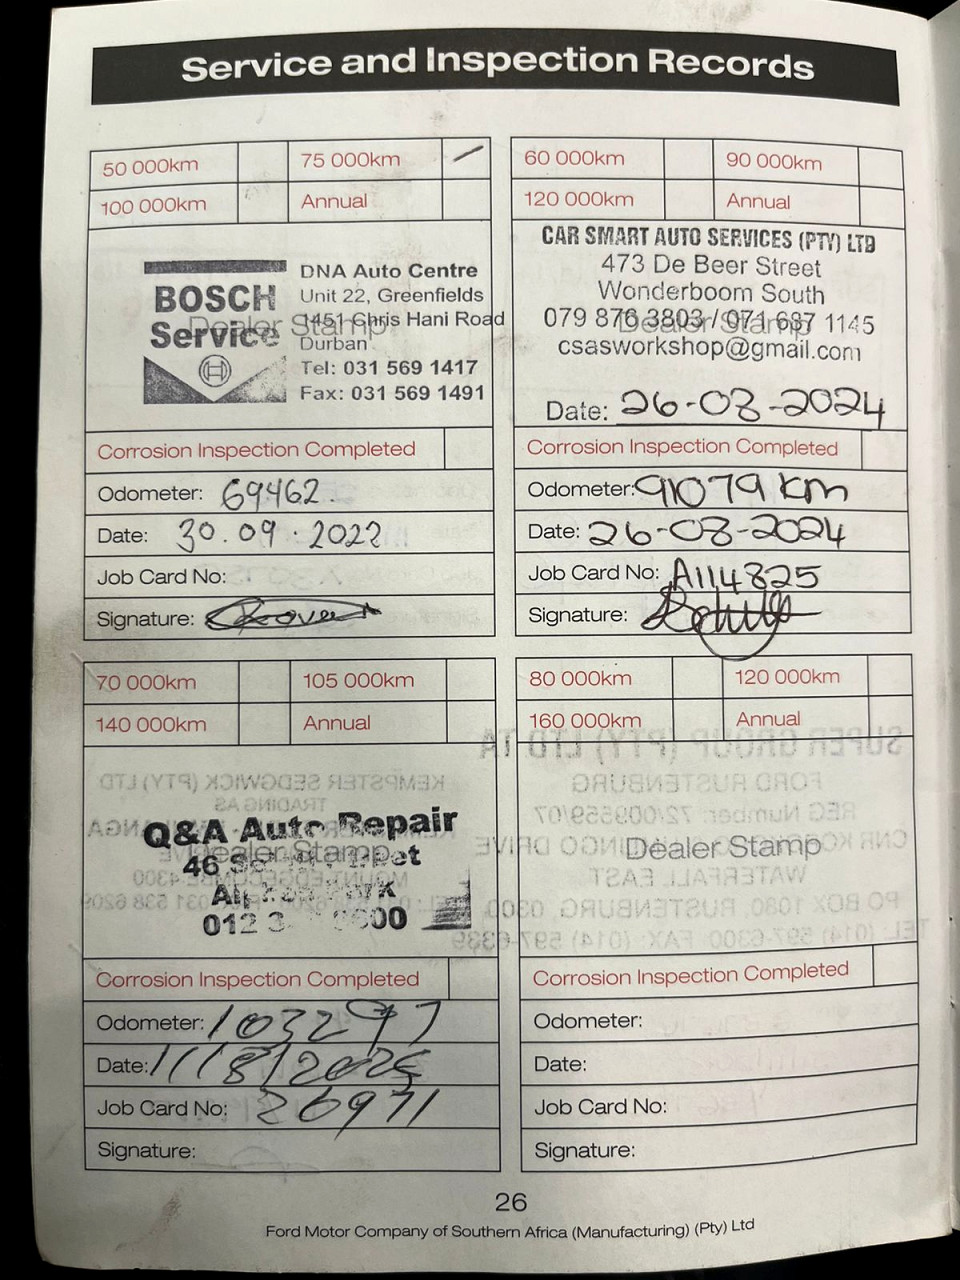 Service and Inspection Records
50 000km
75 000km
100 000km
Annual
BOSCH
Service
DNA Auto Centre
Unit 22, Greenfields
1451 Chris Hani Road
Durban
Tel: 031 569 1417
Fax: 031 569 1491
Dealer Stamp
Corrosion Inspection Completed
Odometer: 69462
Date: 30.09.2022
Job Card No:
Signature:
60 000km
90 000km
120 000km
Annual
CAR SMART AUTO SERVICES (PTY) LTD
473 De Beer Street
Wonderboom South
079 876 3803 / 071 637 1145
Dealer Stamp
csasworkshop@gmail.com
Date: 26-08-2024
Corrosion Inspection Completed
Odometer: 91079 km
Date: 26-08-2024
Job Card No: A114825
Signature:
70 000km
105 000km
140 000km
Annual
Q&A Auto Repair
Dealer Stamp
46
012 3
Corrosion Inspection Completed
Odometer: 103297
Date: 11/8/2025
Job Card No: 26971
Signature:
80 000km
120 000km
160 000km
Annual
Dealer Stamp
Corrosion Inspection Completed
Odometer:
Date:
Job Card No:
Signature:
26
Ford Motor Company of Southern Africa (Manufacturing) (Pty) Ltd